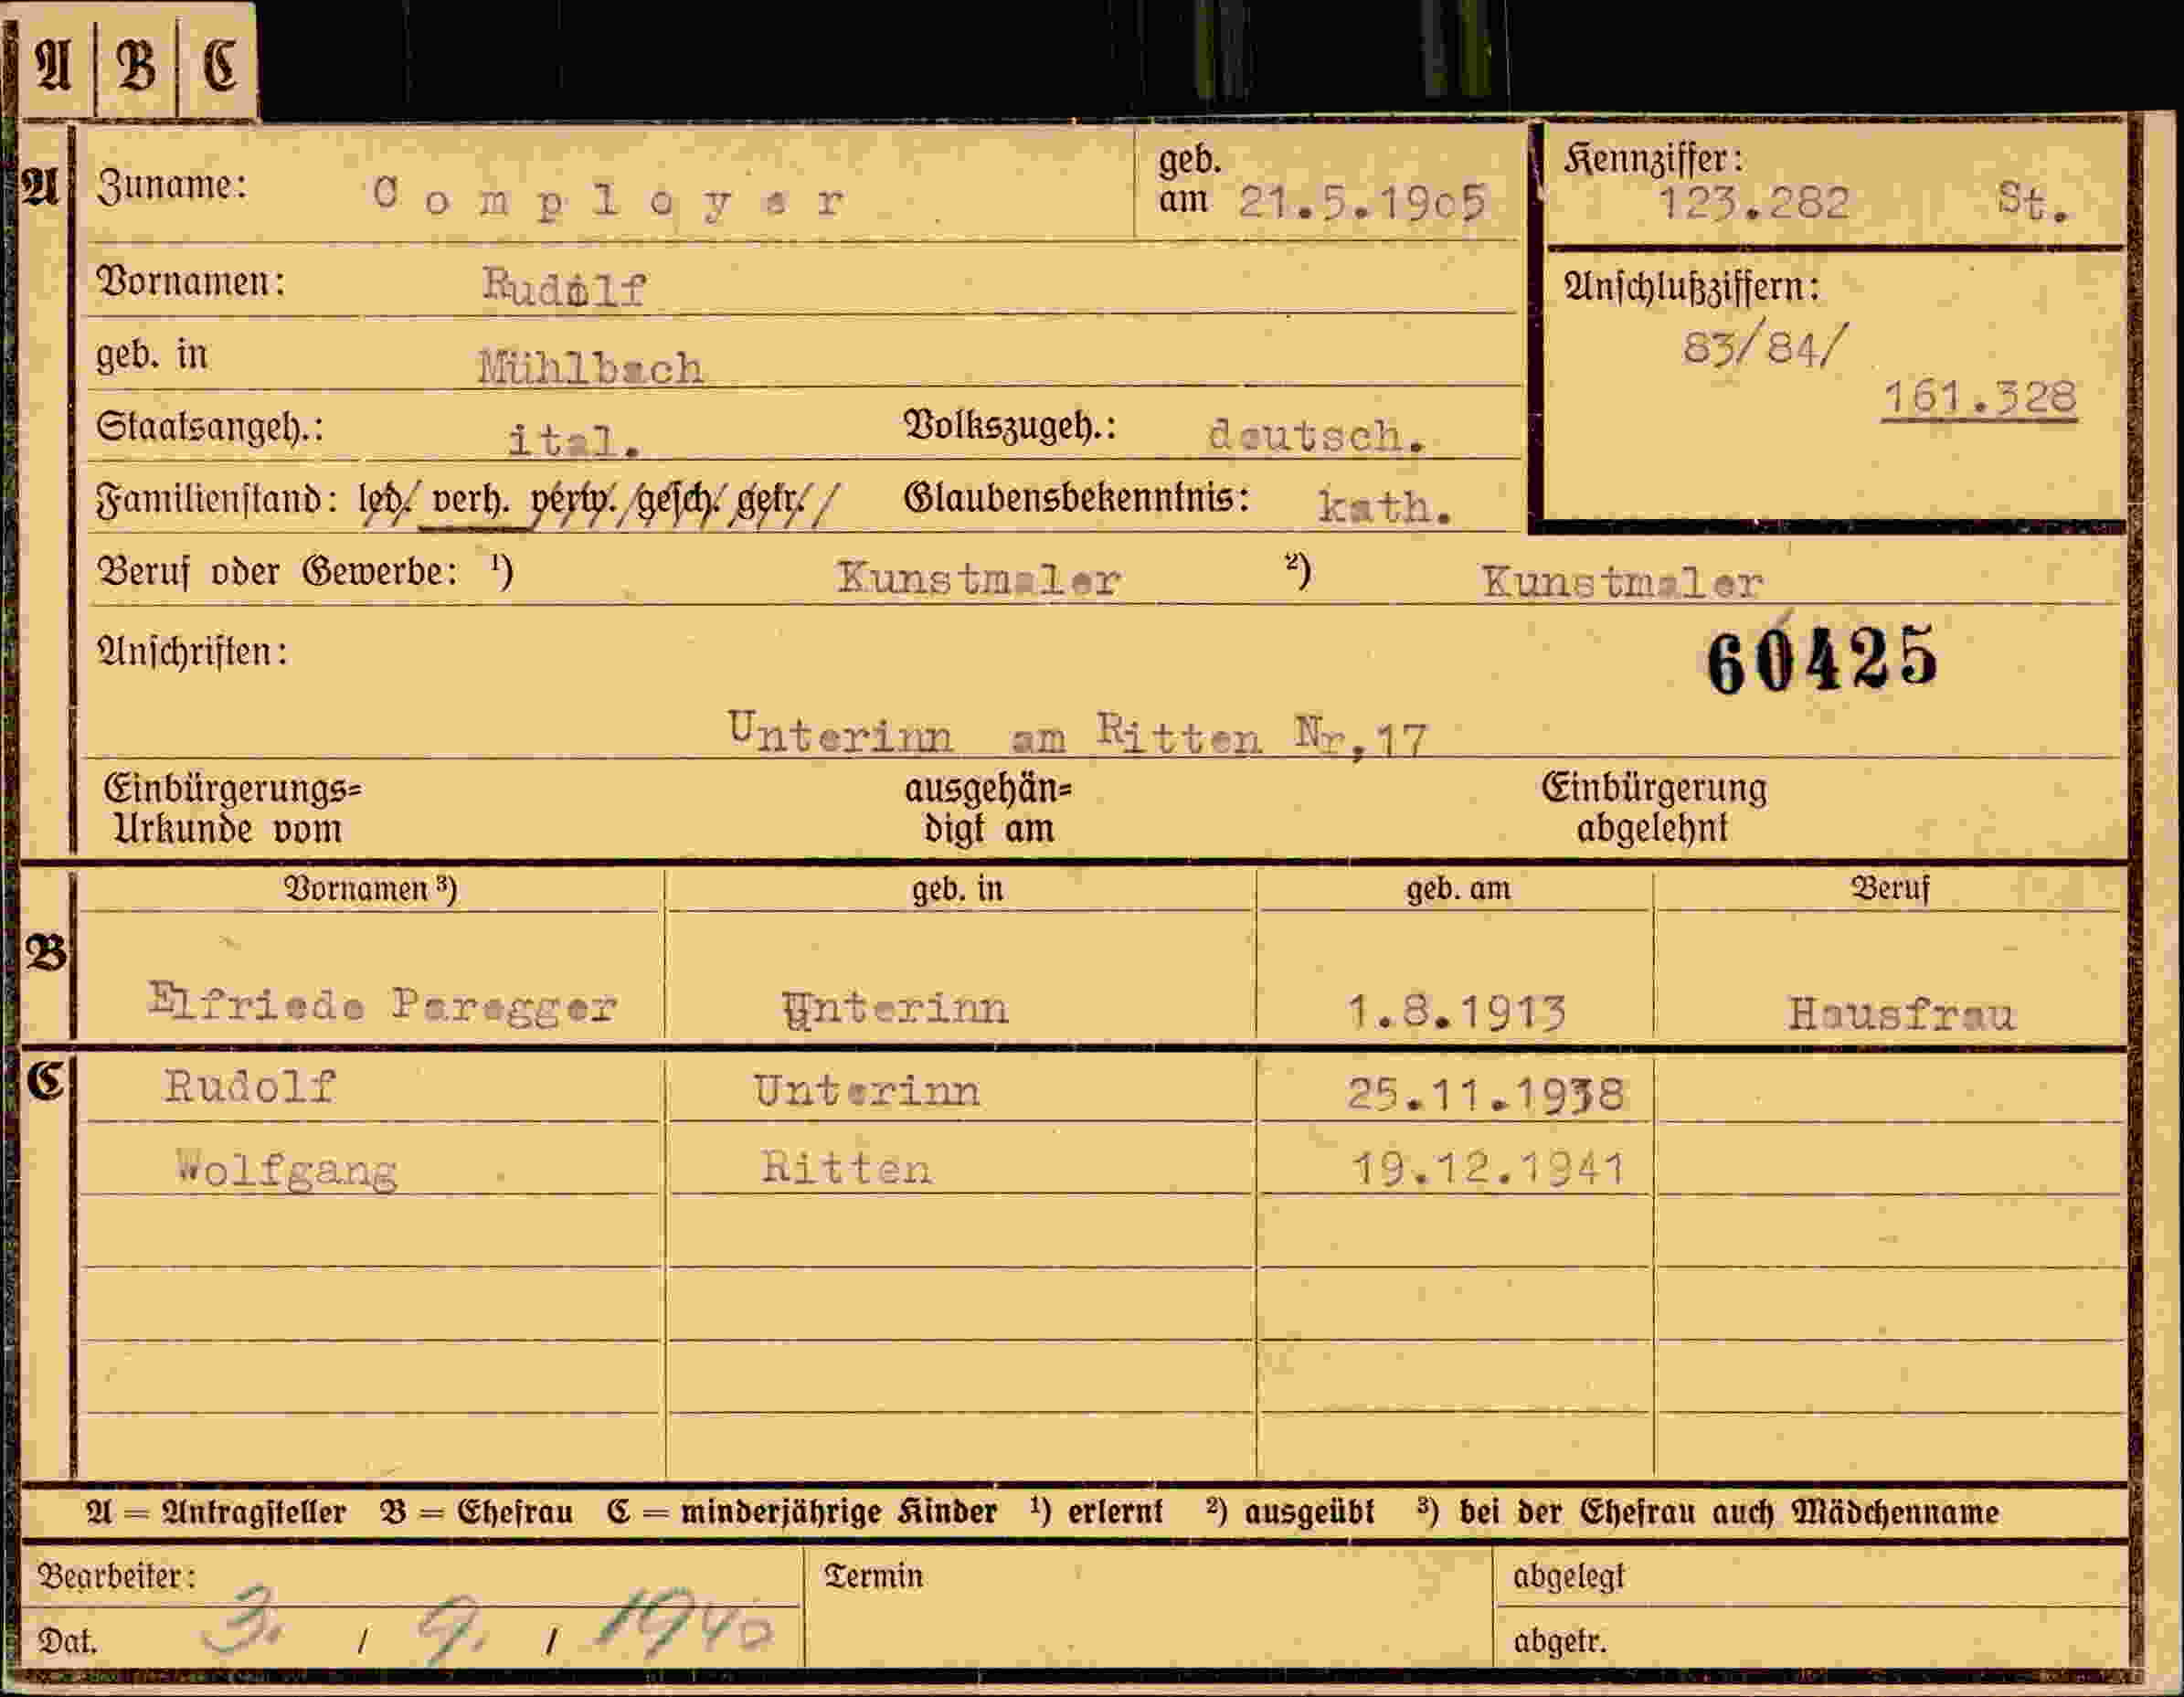 A B C
A Zuname: Comployer geb. am 21.5.1905 Kennziffer: 123.282 St.
Vornamen: Rudolf Anschlußziffern:
geb. in Mühlbach 83/84/
161.328
Staatsangeh.: ital. Volkszugeh.: deutsch.
Familienstand: led/ verh. verw./gesch/ getr// Glaubensbekenntnis: kath.
Beruf oder Gewerbe: ¹) Kunstmaler ²) Kunstmaler
Anschriften: 60425
Unterinn am Ritten Nr,17
Einbürgerungs= ausgehän= Einbürgerung
Urkunde vom digt am abgelehnt
Vornamen ³) geb. in geb. am Beruf
B
Elfriede Paregger Unterinn 1.8.1913 Hausfrau
C Rudolf Unterinn 25.11.1938
Wolfgang Ritten 19.12.1941
A = Antragsteller B = Ehefrau C = minderjährige Kinder ¹) erlernt ²) ausgeübt ³) bei der Ehefrau auch Mädchenname
Bearbeiter: Termin abgelegt
Dat. 3. / 9. / 1940 abgetr.